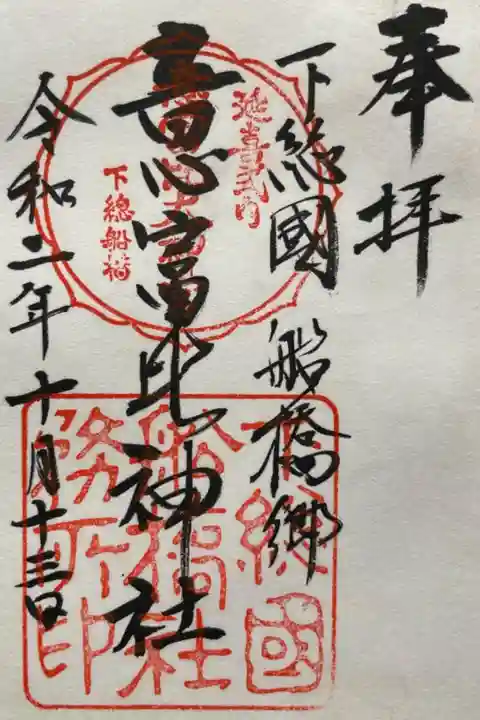 奉拝
下総國 船橋郷
意富比神社
令和二年十月十三日
延喜式内
下總船橋
下總國
船橋社
務所印